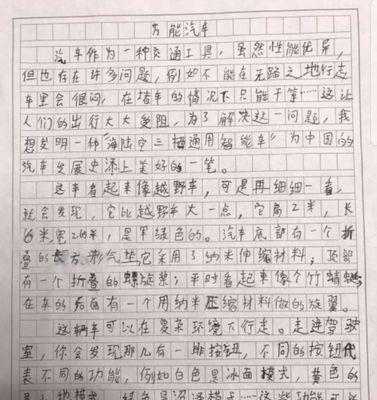 万能汽车
汽车作为一种交通工具，虽然性能优异，
但也存在许多问题，例如不能在无路之地行走
车里会很闷，在堵车的情况下只能干等……这让
人们的出行大大受阻，为了解决这一问题，我
想发明一种“海陆空三栖通用智能车”为中国的
汽车发展史添上美好的一笔。
这车看起来像越野车，可是再细细一看，
就会发现，它比越野车大一点，它高2米，长
6米，宽2.6米，是军绿色的。汽车底部有一个折
叠的长方形气垫，它采用了纳米伸缩材料；顶部
有一个折叠的螺旋桨；平时看起来像个竹蜻蜓
在车的后面有一个用纳米压缩材料做的旋翼。
这辆车可以在复杂环境下行走。走进驾驶
室，你会发现那儿有一排按钮，不同的按钮代
表不同的功能，例如白色是冰面模式，黄色的
是 地模式，绿色是沼泽模式……这些功能可